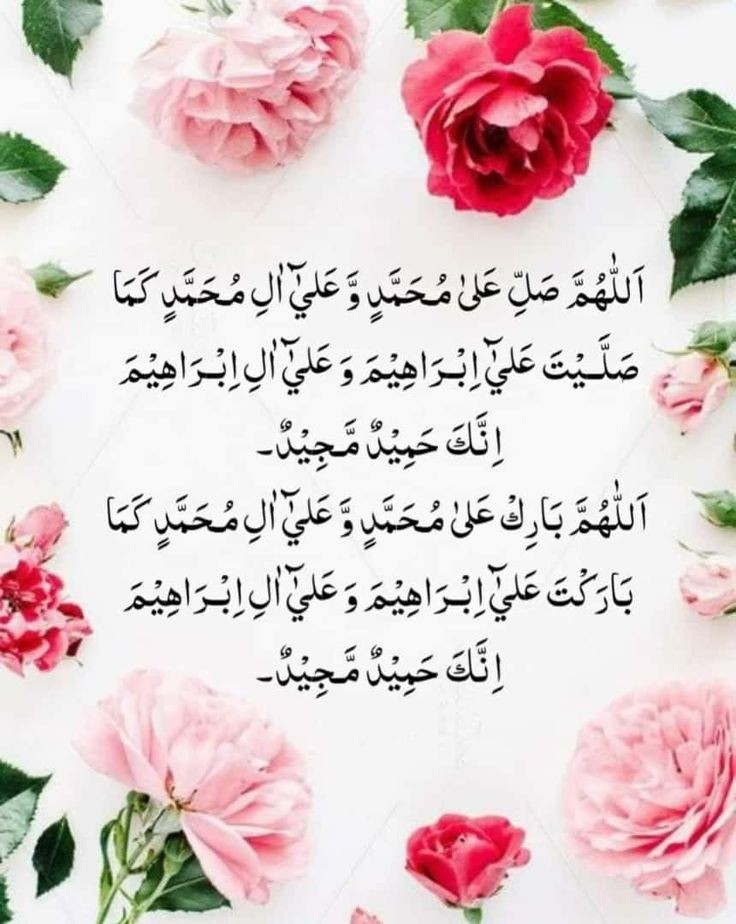 اَللّٰهُمَّ صَلِّ عَلىٰ مُحَمَّدٍ وَّ عَليٓ اٰلِ مُحَمَّدٍ كَمَا
صَلَّيْتَ عَليٓ اِبْرَاهِيْمَ وَ عَليٓ اٰلِ اِبْرَاهِيْمَ
اِنَّكَ حَمِيْدٌ مَّجِيْدٌ۔
اَللّٰهُمَّ بَارِكْ عَلىٰ مُحَمَّدٍ وَّ عَليٓ اٰلِ مُحَمَّدٍ كَمَا
بَارَكْتَ عَليٓ اِبْرَاهِيْمَ وَ عَليٓ اٰلِ اِبْرَاهِيْمَ
اِنَّكَ حَمِيْدٌ مَّجِيْدٌ۔